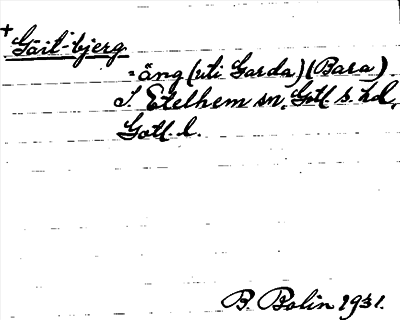 + Gäit-bjerg
= äng (uti Garda) (Bara)
I. Etelhem sn, Gotl. s. hd,
Gotl. l.
B. Bolin 1931.